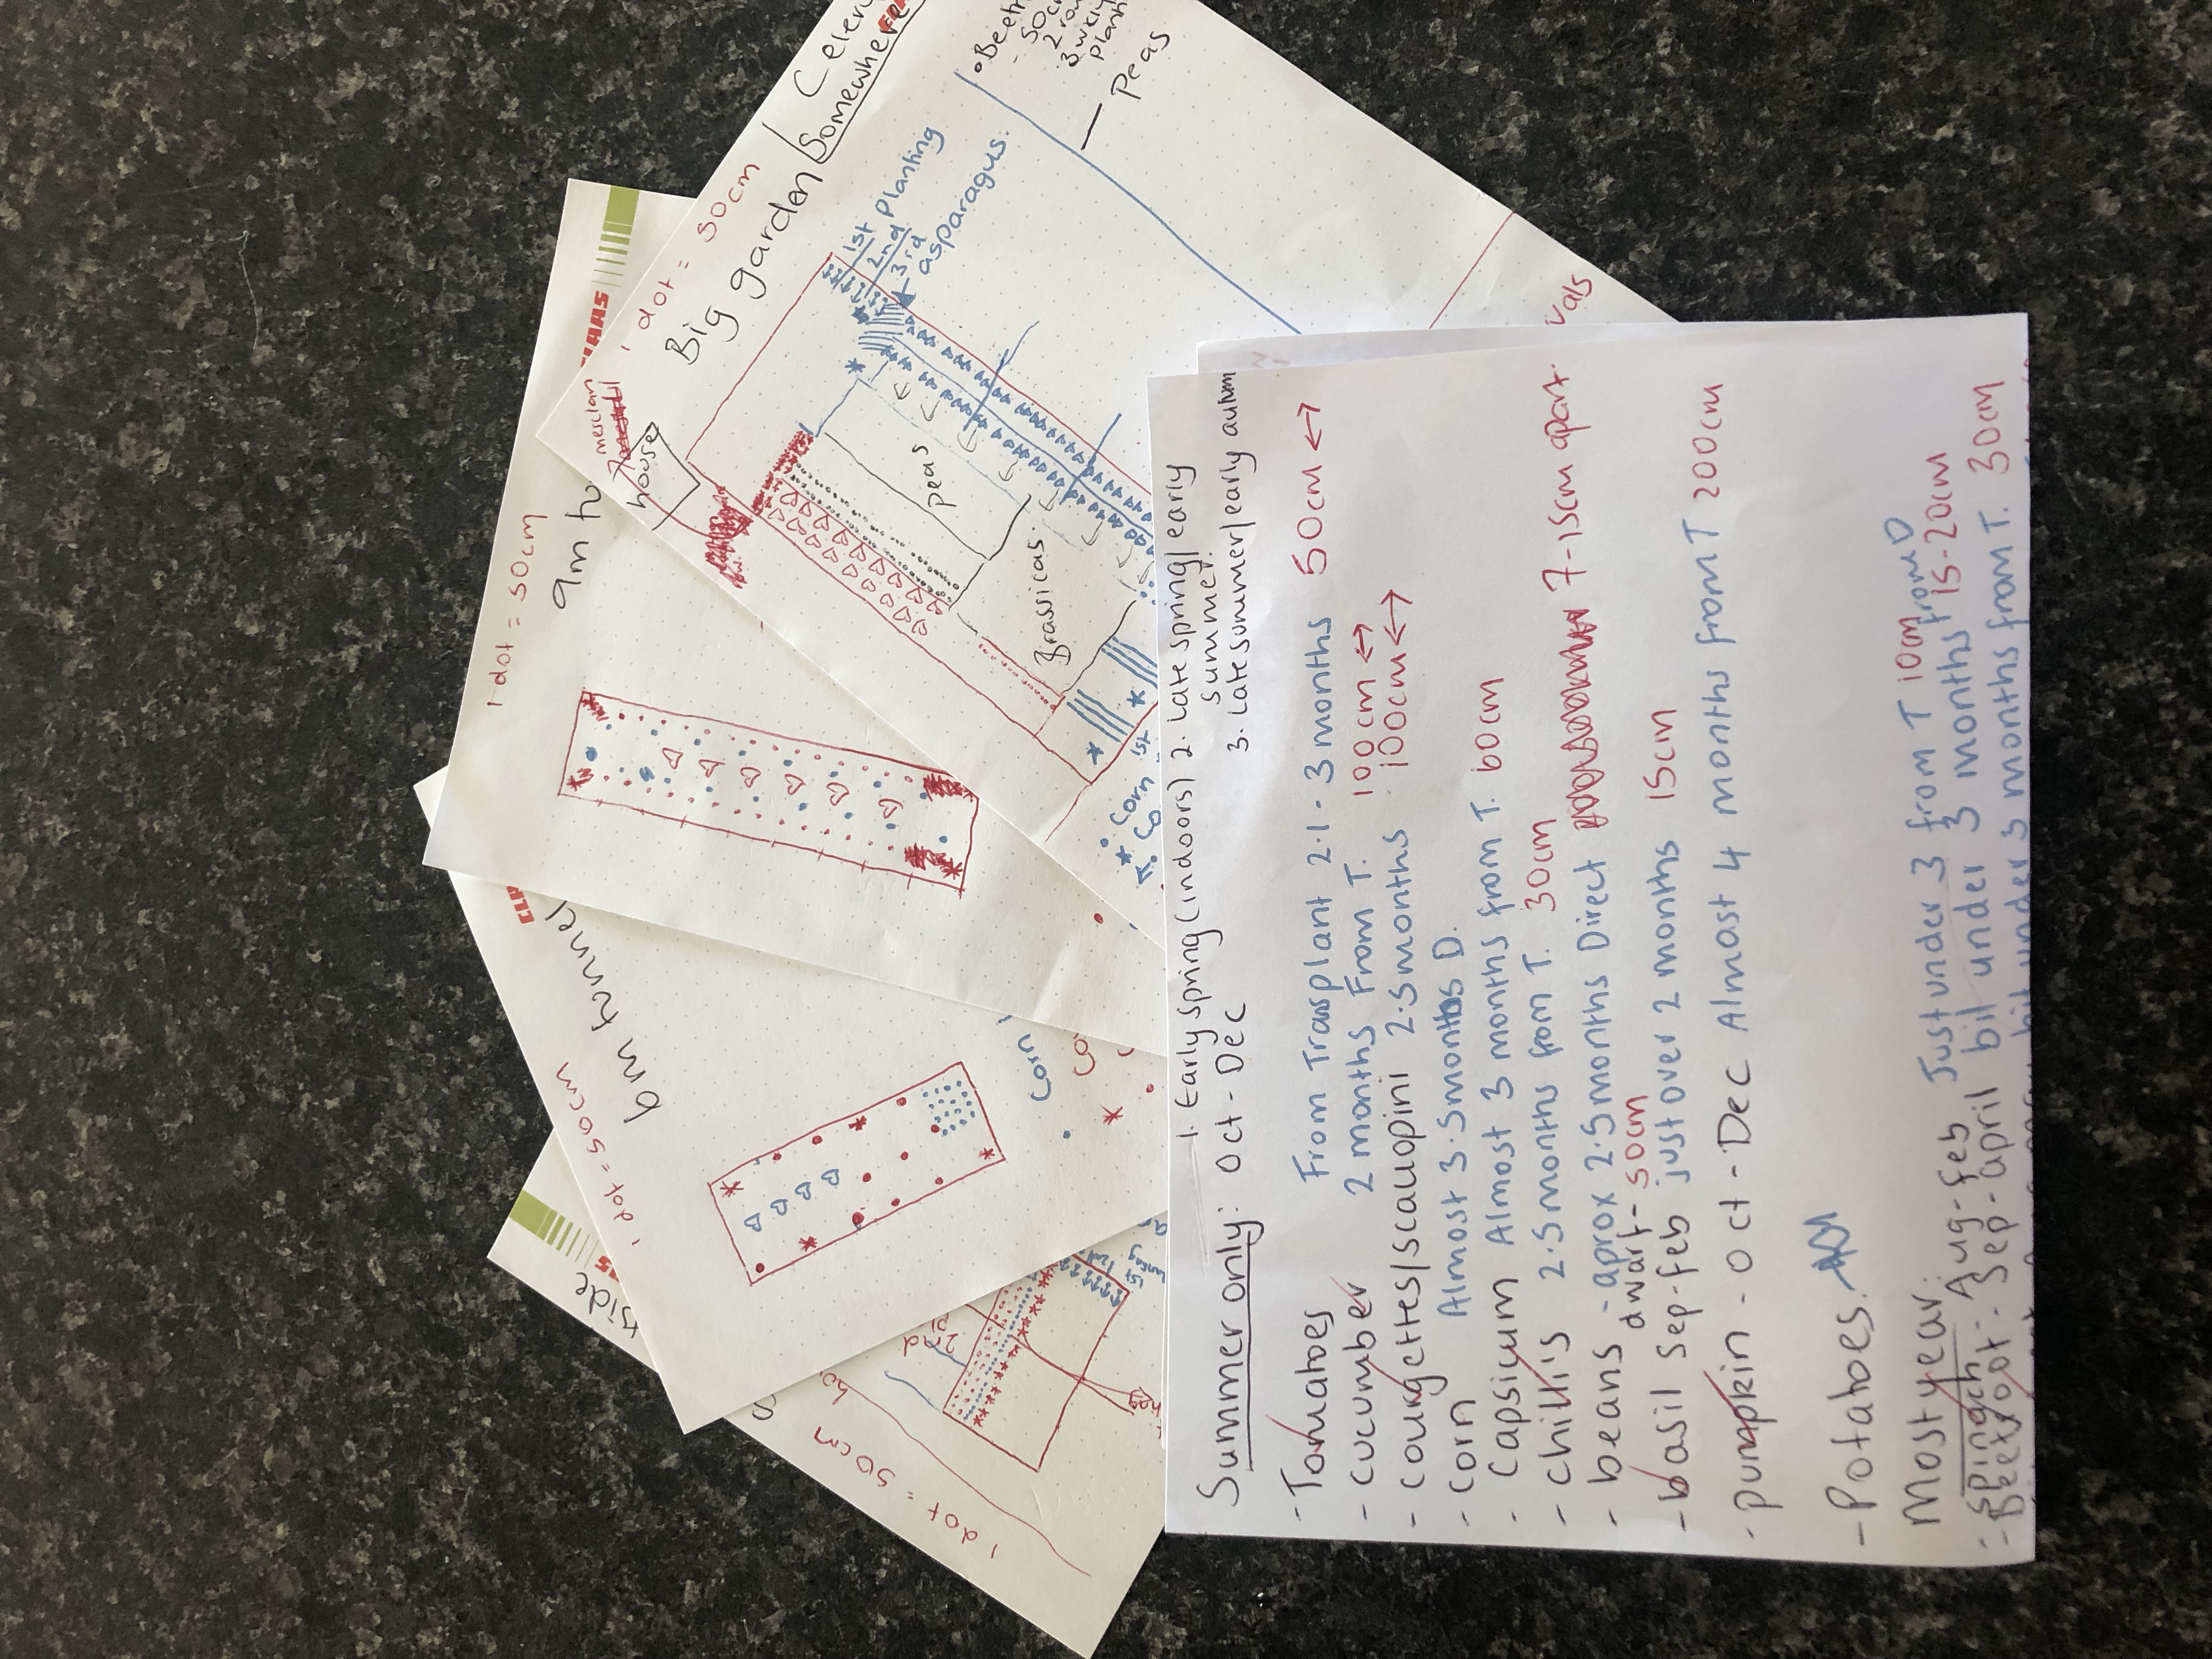 1. Early spring (indoors) 2. Late spring/early
summer.
Summer only: Oct - Dec 3. Late summer/early autum
- Tomatoes From Transplant 2.1 - 3 months 50cm ↔
- cucumber 2 months From T. 100cm ↔
- courgettes/scallopini 2.5 months 100cm ↔
- corn Almost 3.5 months D.
- Capsicum Almost 3 months from T. 60cm
- chillis 2.5 months from T. 30cm
- beans - aprox 2.5 months Direct 7-15cm apart.
dwarf - 50cm
- basil Sep-Feb just over 2 months 15cm
- pumpkin - Oct - Dec Almost 4 months from T 200cm
- Potatoes.
Most year:
- Spinach Aug-Feb Just under 3 from T 10cm
- Beetroot - Sep - april bit under 3 months from D 15-20cm
bit under 3 months from T. 30cm
Big garden
1 dot = 50cm
Somewhere
1st Planting
2nd
3rd
asparagus.
Peas
2 row
Peas
Brassicas.
mesclan
house
Corn 1st
vals
1 dot = 50cm
9m
1 dot = 50cm
6m tunnel
Corn
1 dot = 50cm
2nd